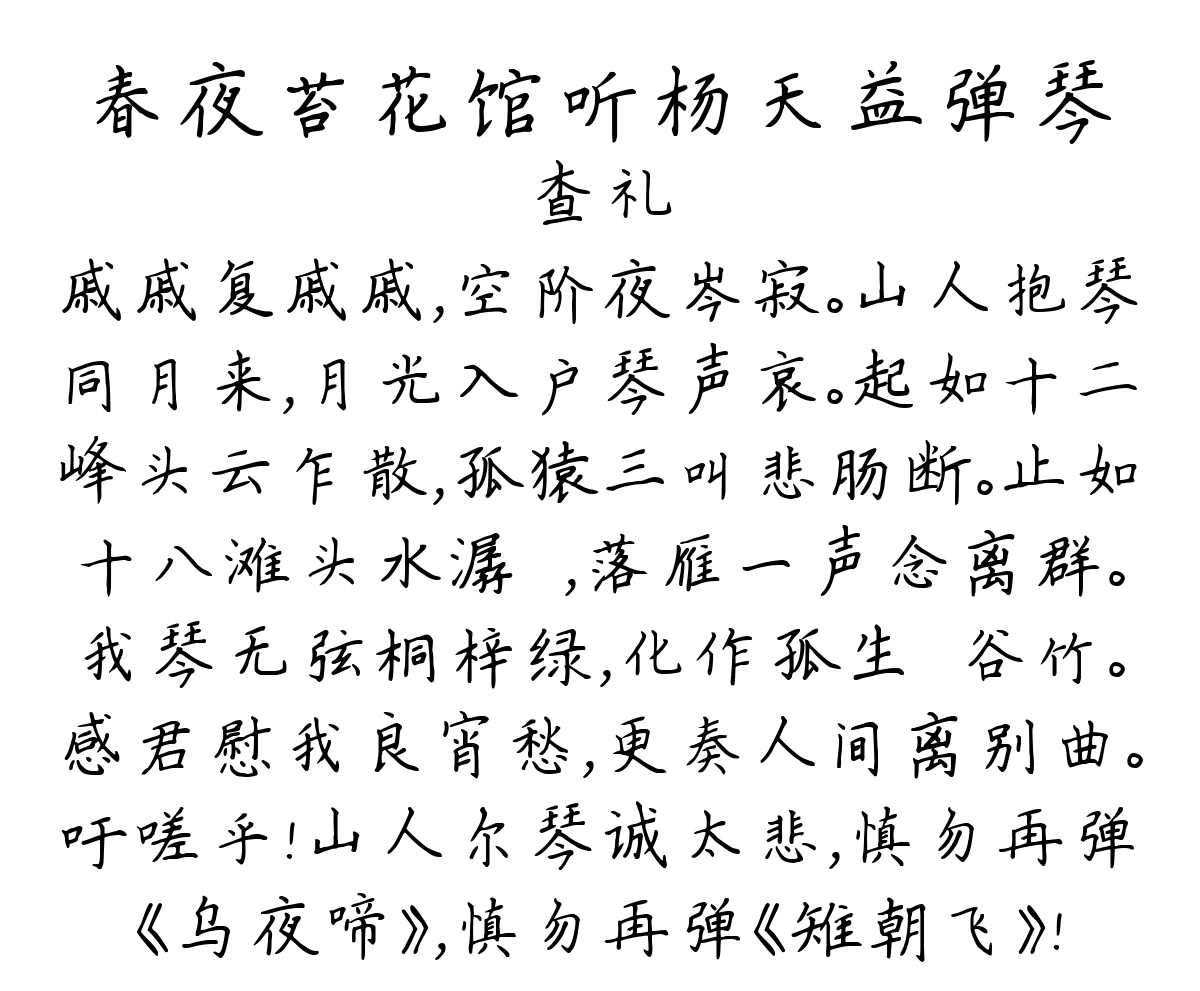 春夜苔花馆听杨天益弹琴
查礼
戚戚复戚戚,空阶夜岑寂。山人抱琴
同月来,月光入户琴声哀。起如十二
峰头云乍散,孤猿三叫悲肠断。止如
十八滩头水潺 ,落雁一声念离群。
我琴无弦桐梓绿,化作孤生 谷竹。
感君慰我良宵愁,更奏人间离别曲。
吁嗟乎!山人尔琴诚太悲,慎勿再弹
《乌夜啼》,慎勿再弹《雉朝飞》!